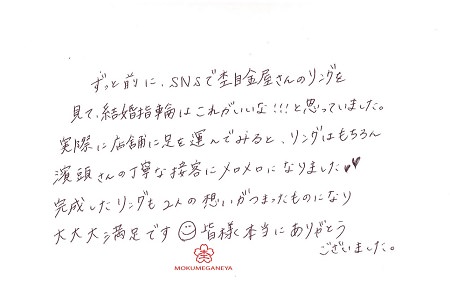 ずっと前に、SNSで杢目金屋さんのリングを
見て、結婚指輪はこれがいいな!!!と思っていました。
実際に店舗に足を運んでみると、リングはもちろん
濱頭さんの丁寧な接客にメロメロになりました♥♥
完成したリングも2人の想いがつまったものになり
大大大満足です☺皆様、本当にありがとう
ございました。
MOKUMEGANEYA